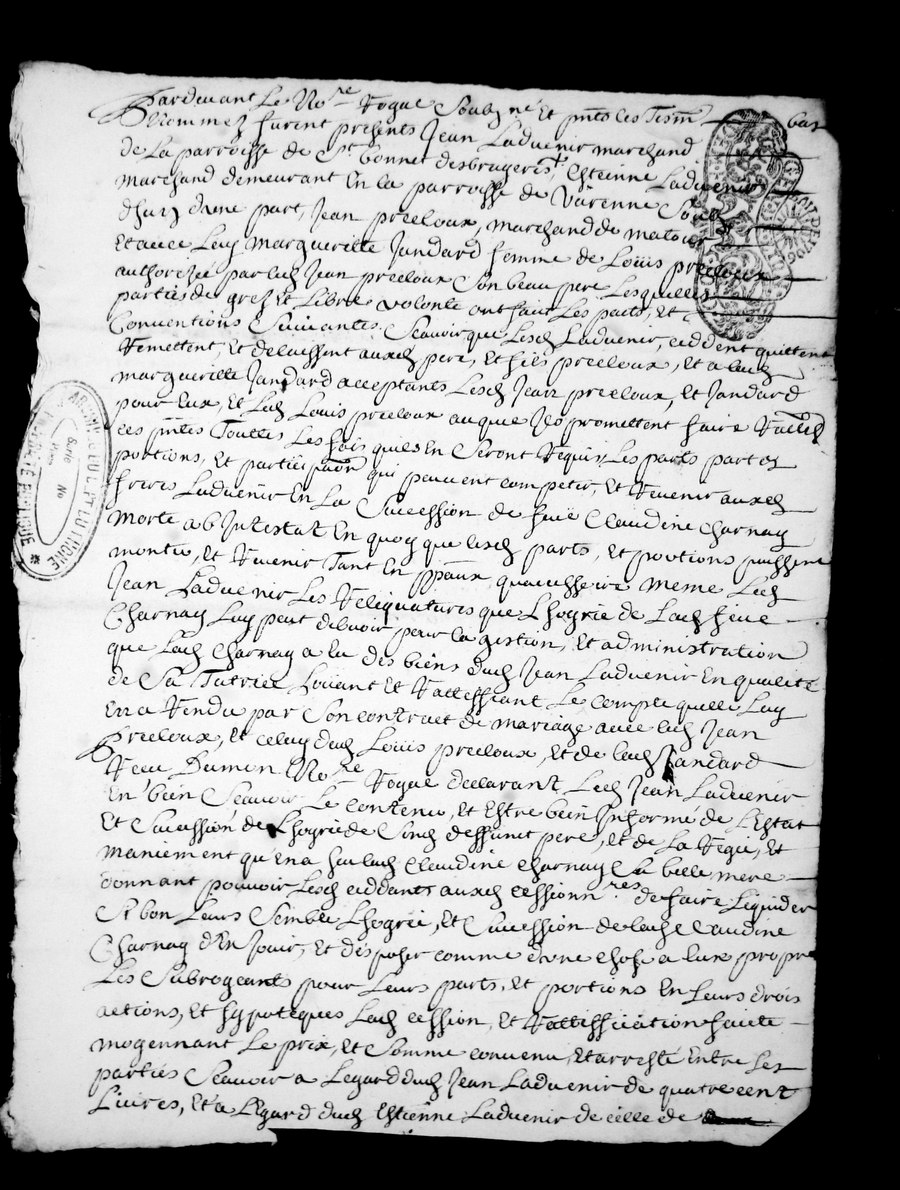 Pardevant Le No.re Royal Soubz.né Et pnts les Tesm. bas
Nommez furent presents Jean Laduenir marchand
de La parroisse de St bonnet desbruyeres, Estienne Laduenir
Marchand demeurant En la parroisse de Varenne Soub
dhun dune part, Jean preeloux, marchand de matour
Et avec Luy Margueritte Jandard femme de Louis preeloux
authorizée par led Jean preeloux Son beau pere Lesquelles
parties de grez Et Libre volonté ont fait Les pacts, Et
Conventions Suivantes, Scavoir que Lesd Laduenir, ceddent quittent
Remettent, Et delaissent auxd pere, Et fils preeloux, Et a lad
margueritte Jandard acceptants Lesd Jean preeloux, Et Jandard
pour Eux, Et Led Louis preeloux auquel Ils promettent faire Ratifier
ces pntes Touttes Les fois quils En Seront Requis, Les parts partes
portions, Et participaõn qui peuvent competer, Et Revenir auxd
freres Laduenir En La Succession de feüe Claudine Charnay
Morte ab Intestat En quoy que lesd parts, Et portions puissent
monter, Et Revenir Tant En ppaux, meme Led
Jean Laduenir Les Reliquatures que Lhoyrie de Lad feüe
Charnay Luy peut debvoir pour la gestion, Et administration
que Lad Charnay a Eu des biens dud Jean Laduenir En qualité
de Sa Tutrice Loüant Et Rattiffiant Le Compte quelle Luy
En a Rendu par Son contract de mariage avec led Jean
Preeloux, Et celuy dud Louis preeloux, Et de lad Jandard
Receu Dumon No.re Royal declarant Led Jean Laduenir
En bien Scavoir Le Contenu, Et Estre bien Informé de L'Estat
Et Succession de Lhoyrie de Sond deffunct pere, Et de La Regie, Et
Maniement qu'en a fait lad Claudine Charnay Sa belle mere
donnant pouvoir Lesd ceddants auxd cessionn.res de faire Liquider
Si bon Leurs Semble Lhoyrie, Et Succession de lad Claudine
Charnay d'En Jouir, Et disposer comme d'une chose a Eux propre
Les Subrogeants pour Leurs parts, Et portions En Leurs drois
actions, Et hypoteques Lad cession, Et Rattiffication faitte
moyennant Le prix, Et Somme convenu, Et arresté Entre Les
parties Scavoir a Legard dud Jean Laduenir de quatre cent
Livres, Et a L'Egard dud Estienne Laduenir de celle de
ARCHIVES DU DEPT
Serie
No